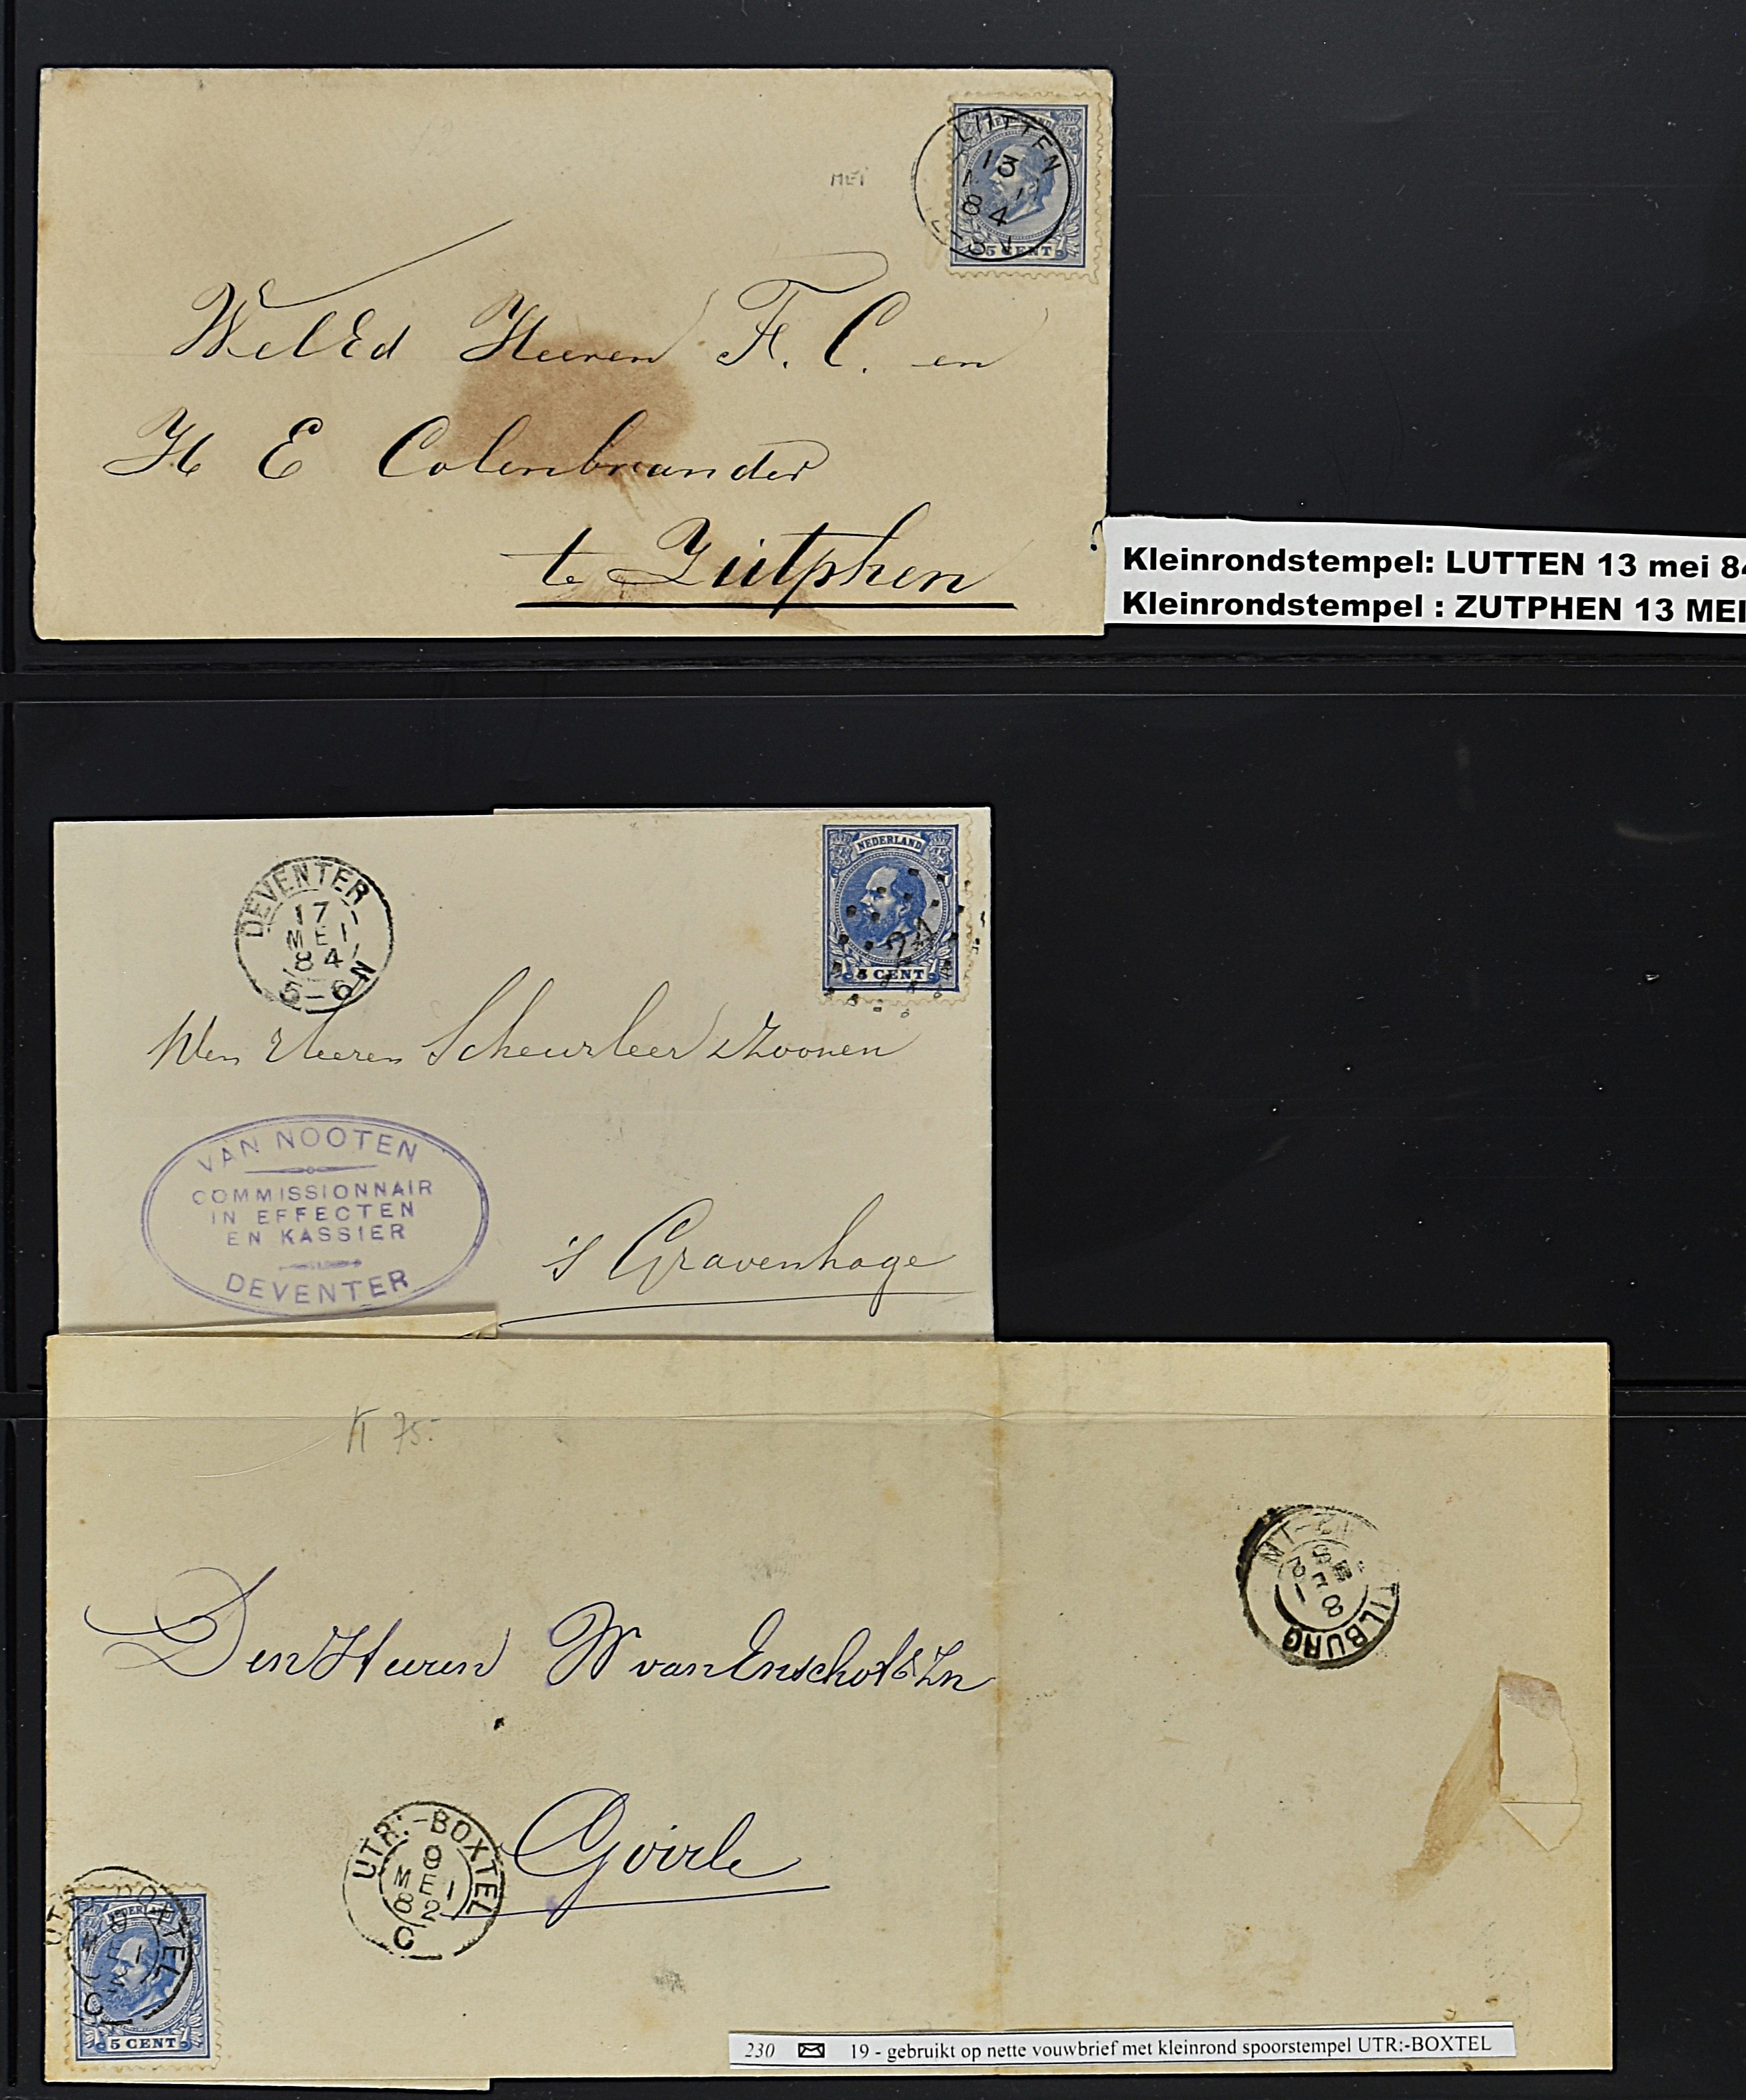 NEDERLAND
LUTTEN
13
84
5 CENT
MEI
WelEd Heeren F. C. en
H E Colenbrander
te Zutphen
Kleinrondstempel: LUTTEN 13 mei 84
Kleinrondstempel : ZUTPHEN 13 MEI
NEDERLAND
5 CENT
DEVENTER
17
MEI
84
5-6N
Heeren Scheurleer & Zoonen
VAN NOOTEN
COMMISSIONNAIR
IN EFFECTEN
EN KASSIER
DEVENTER
's Gravenhage
75.-
TILBURG
8
MEI
12-1N
Den Heeren W van Enschot & Zn
Goirle
UTR:-BOXTEL
8
MEI
82
C
UTR:-BOXTEL
C
5 CENT
230 19 - gebruikt op nette vouwbrief met kleinrond spoorstempel UTR:-BOXTEL